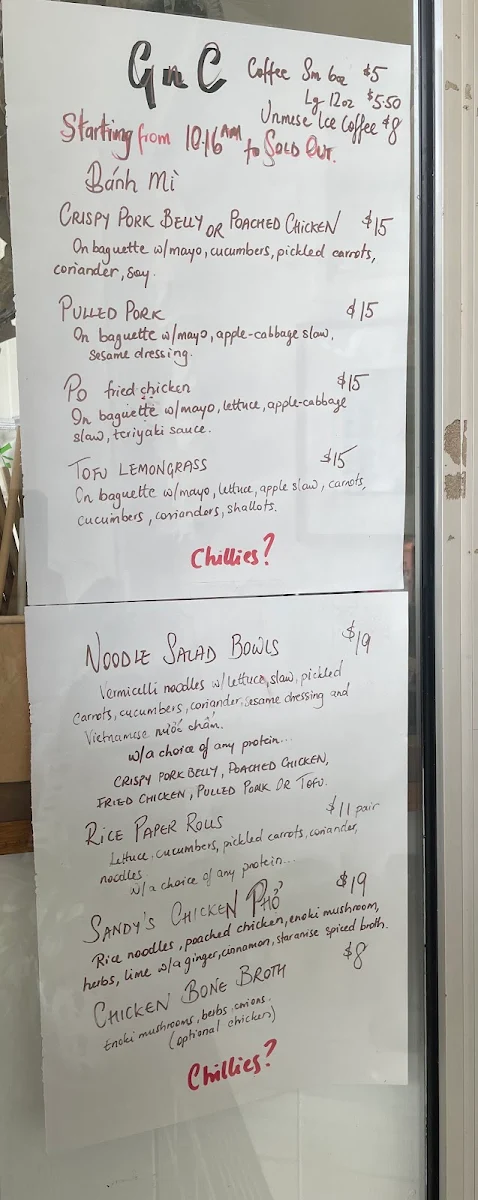 GnC Coffee Sm 6oz $5
Lg 12oz $5.50
Unmese Ice Coffee $8
Starting from 10:16 AM to SOLD OUT.
Bánh Mì
CRISPY PORK BELLY OR POACHED CHICKEN $15
On baguette w/mayo, cucumbers, pickled carrots,
coriander, soy.
PULLED PORK $15
On baguette w/mayo, apple-cabbage slaw,
sesame dressing.
Po fried chicken $15
On baguette w/mayo, lettuce, apple-cabbage
slaw, teriyaki sauce.
TOFU LEMONGRASS $15
On baguette w/mayo, lettuce, apple slaw, carrots,
cucumbers, corianders, shallots.
Chillies?
NOODLE SALAD BOWLS $19
Vermicelli noodles w/lettuce, slaw, pickled
carrots, cucumbers, coriander, sesame dressing and
Vietnamese nước chấm.
w/a choice of any protein...
CRISPY PORK BELLY, POACHED CHICKEN,
FRIED CHICKEN, PULLED PORK OR TOFU.
RICE PAPER ROLLS $11 pair
Lettuce, cucumbers, pickled carrots, coriander,
noodles
w/a choice of any protein...
SANDY'S CHICKEN PHỞ $19
Rice noodles, poached chicken, enoki mushroom,
herbs, lime w/a ginger, cinnamon, staranise spiced broth.
CHICKEN BONE BROTH $8
Enoki mushrooms, herbs, onions.
(optional chicken)
Chillies?